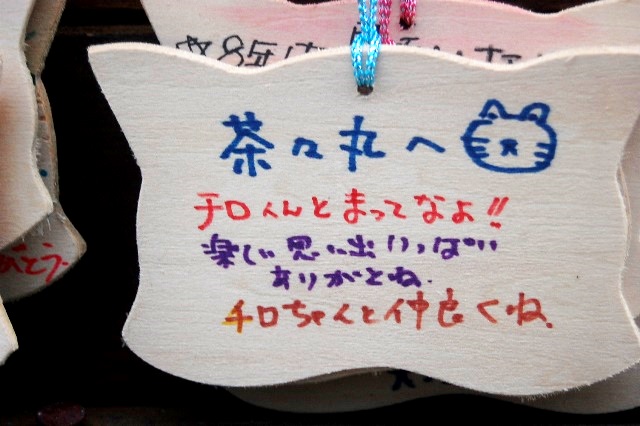 茶々丸へ
チロくんとまっててなよ!!
楽しい思い出いっぱい
ありがとね.
チロちゃんと仲良くね.